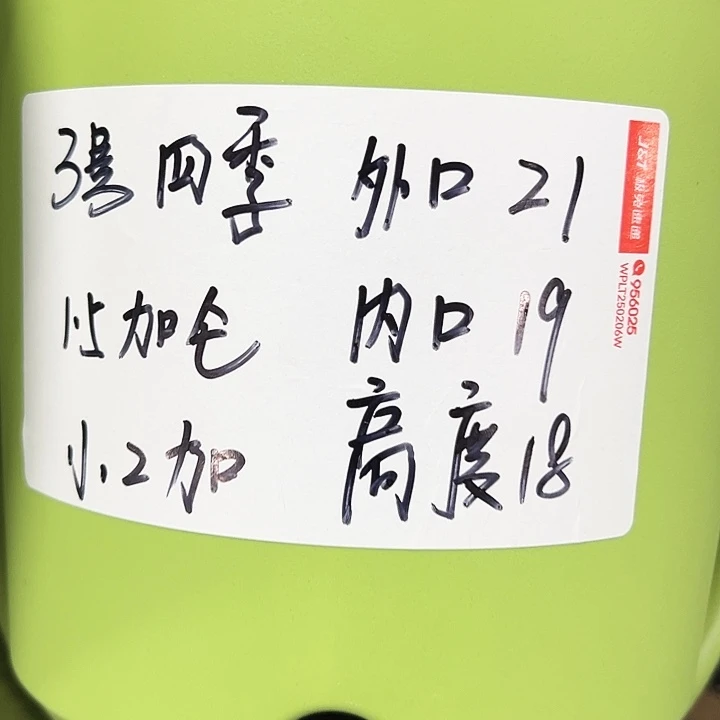 3号 四季 外口 21
1.5加仑 内口 19
小.2加 高度18
J&T 极兔速递
956025
WPLT250206W